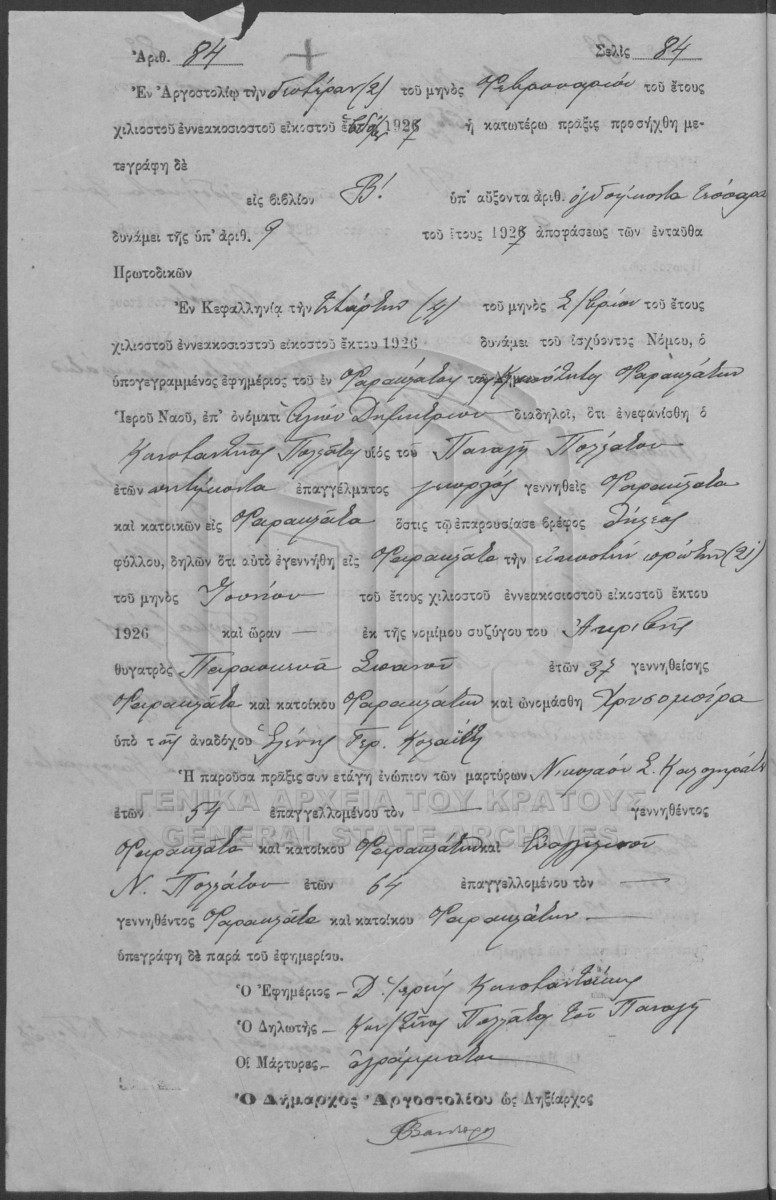 Ἀριθ. 84 Σελὶς 84
Ἐν Ἀργοστολίῳ τὴν δευτέραν (2) τοῦ μηνὸς Φεβρουαρίου τοῦ ἔτους
χιλιοστοῦ ἐννεακοσιοστοῦ εἰκοστοῦ ἑβδόμου 1927 ἡ κατωτέρω πρᾶξις προσήχθη με-
τεγράφη δὲ
εἰς βιβλίον Β! ὑπ' αὔξοντα ἀριθ. ὀγδοήκοντα τέσσαρα
δυνάμει τῆς ὑπ' ἀριθ. 9 τοῦ ἔτους 1927 ἀποφάσεως τῶν ἐνταῦθα
Πρωτοδικῶν
Ἐν Κεφαλληνίᾳ τὴν τετάρτην (4) τοῦ μηνὸς 2/βρίου τοῦ ἔτους
χιλιοστοῦ ἐννεακοσιοστοῦ εἰκοστοῦ ἕκτου 1926 δυνάμει τοῦ ἰσχύοντος Νόμου, ὁ
ὑπογεγραμμένος ἐφημέριος τοῦ ἐν Φαρακλάτοις Κοινότητος Φαρακλάτων
Ἱεροῦ Ναοῦ, ἐπ' ὀνόματι Ἁγίου Δημητρίου διαδηλοῖ, ὅτι ἐνεφανίσθη ὁ
Κωνσταντῖνος Πολλάτος υἱὸς τοῦ Παναγῆ Πολλάτου
ἐτῶν πεντήκοντα ἐπαγγέλματος γεωργὸς γεννηθεὶς Φαρακλάτα
καὶ κατοικῶν εἰς Φαρακλάτα ὅστις τῷ ἐπαρουσίασε βρέφος θήλεος
φύλλου, δηλῶν ὅτι αὐτὸ ἐγεννήθη εἰς Φαρακλάτα τὴν εἰκοστὴν πρώτην (21)
τοῦ μηνὸς Ἰουνίου τοῦ ἔτους χιλιοστοῦ ἐννεακοσιοστοῦ εἰκοστοῦ ἕκτου
1926 καὶ ὥραν — ἐκ τῆς νομίμου συζύγου του Ἀκριβῆς
θυγατρὸς Παρασκευᾶ Σπανοῦ ἐτῶν 37 γεννηθείσης
Φαρακλάτα καὶ κατοίκου Φαρακλάτων καὶ ὠνομάσθη Χρυσομοίρα
ὑπὸ τῆς ἀναδόχου Ἑλένης Γερ. Κολαΐτη
Ἡ παροῦσα πρᾶξις συνετάγη ἐνώπιον τῶν μαρτύρων Νικολάου Σ. Καλογηράτου
ἐτῶν 54 ἐπαγγελλομένου τὸν — γεννηθέντος
Φαρακλάτα καὶ κατοίκου Φαρακλάτων καὶ Εὐαγγελινοῦ
Ν. Πολλάτου ἐτῶν 64 ἐπαγγελλομένου τὸν —
γεννηθέντος Φαρακλάτα καὶ κατοίκου Φαρακλάτων —
ὑπεγράφη δὲ παρὰ τοῦ ἐφημερίου.
Ὁ Ἐφημέριος – Κωνσταντάκης
Ὁ Δηλωτὴς – Κων/τῖνος Πολλάτος τοῦ Παναγῆ
Οἱ Μάρτυρες – ἀγράμματοι
Ὁ Δήμαρχος Ἀργοστολίου ὡς Ληξίαρχος
ΓΕΝΙΚΑ ΑΡΧΕΙΑ ΤΟΥ ΚΡΑΤΟΥΣ
GENERAL STATE ARCHIVES